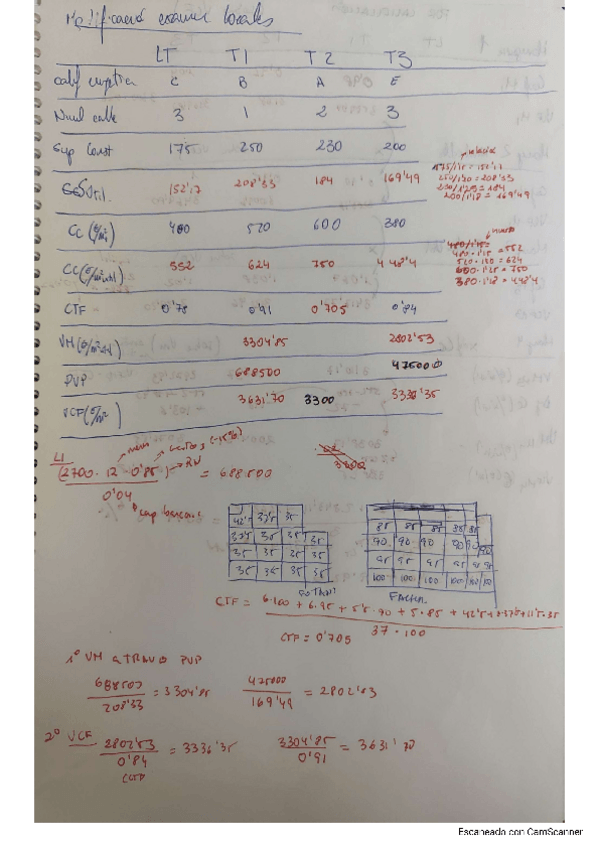 examen locales
LT T1 T2 T3
C B A E
Nivel calle 3 1 2 3
Sup Const 175 250 230 200
Útil. 152'17 208'33 184 169'49
175/1'15 = 152'17
250/1'20 = 208'33
230/1'25 = 184
200/1'18 = 169'49
CC (€/m²) 480 520 600 380
CC (€/m² útil) 552 624 750 448'4
480·1'15 = 552
520·1'20 = 624
600·1'25 = 750
380·1'18 = 448'4
CTF 0'78 0'91 0'705 0'84
VM (€/m² útil) 3304'85 2802'53
PVP 688500 475000
VCF (€/m²) 3631'70 3300 3336'35
L1
(2700 · 12 · 0'85) → RN = 688500
0'04
3300
42'5 37'5 35
35 35 35 35
35 35 35 35
85 85 85 85 85
90 90 90 90 90
95 95 95 95 95 95
100 100 100 100 100 100
CTF = 6·100 + 6·95 + 5'5·90 + 5·85 + 42'5 +
37·100
CTF = 0'705
1º VM a TRAVÉS PVP
688500 / 208'33 = 3304'85 475000 / 169'49 = 2802'53
2º VCF 2802'53 / 0'84 = 3336'35 3304'85 / 0'91 = 3631'70
Escaneado con CamScanner